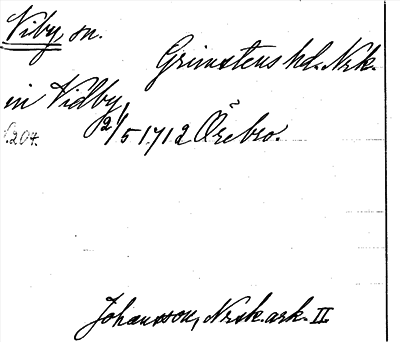 Viby, sn.
Grimstens hd. Nrk.
in Vidby,
12/5 1712 Örebro.
s. 204.
Johansson, Nrsk. ark. II